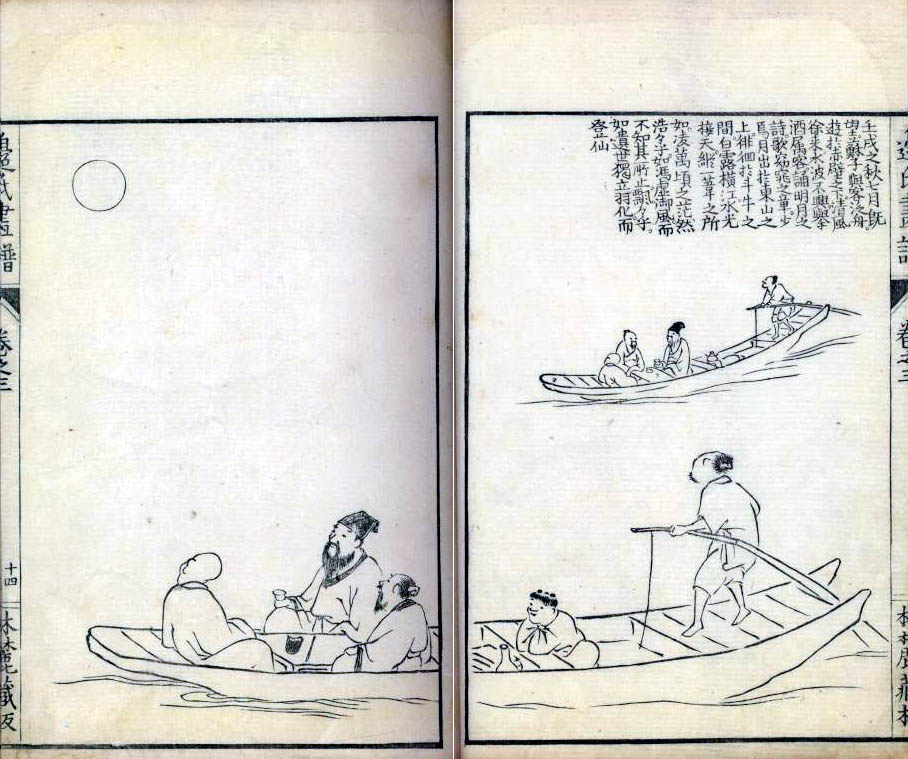 壬戌之秋七月既。
望蘇子與客泛舟。
遊扵赤壁之下清風
徐來水波不興舉
酒属客誦明月之
詩歌窈窕之章少
焉月出扵東山之
上徘徊扵斗牛之
間白露横江水光
接天縱一葦之所
如凌萬頃之茫然
浩々乎如馮虚御風而
不知其所止飄々乎。
如遺世獨立羽化而
登仙
畫譜
卷之三
十四